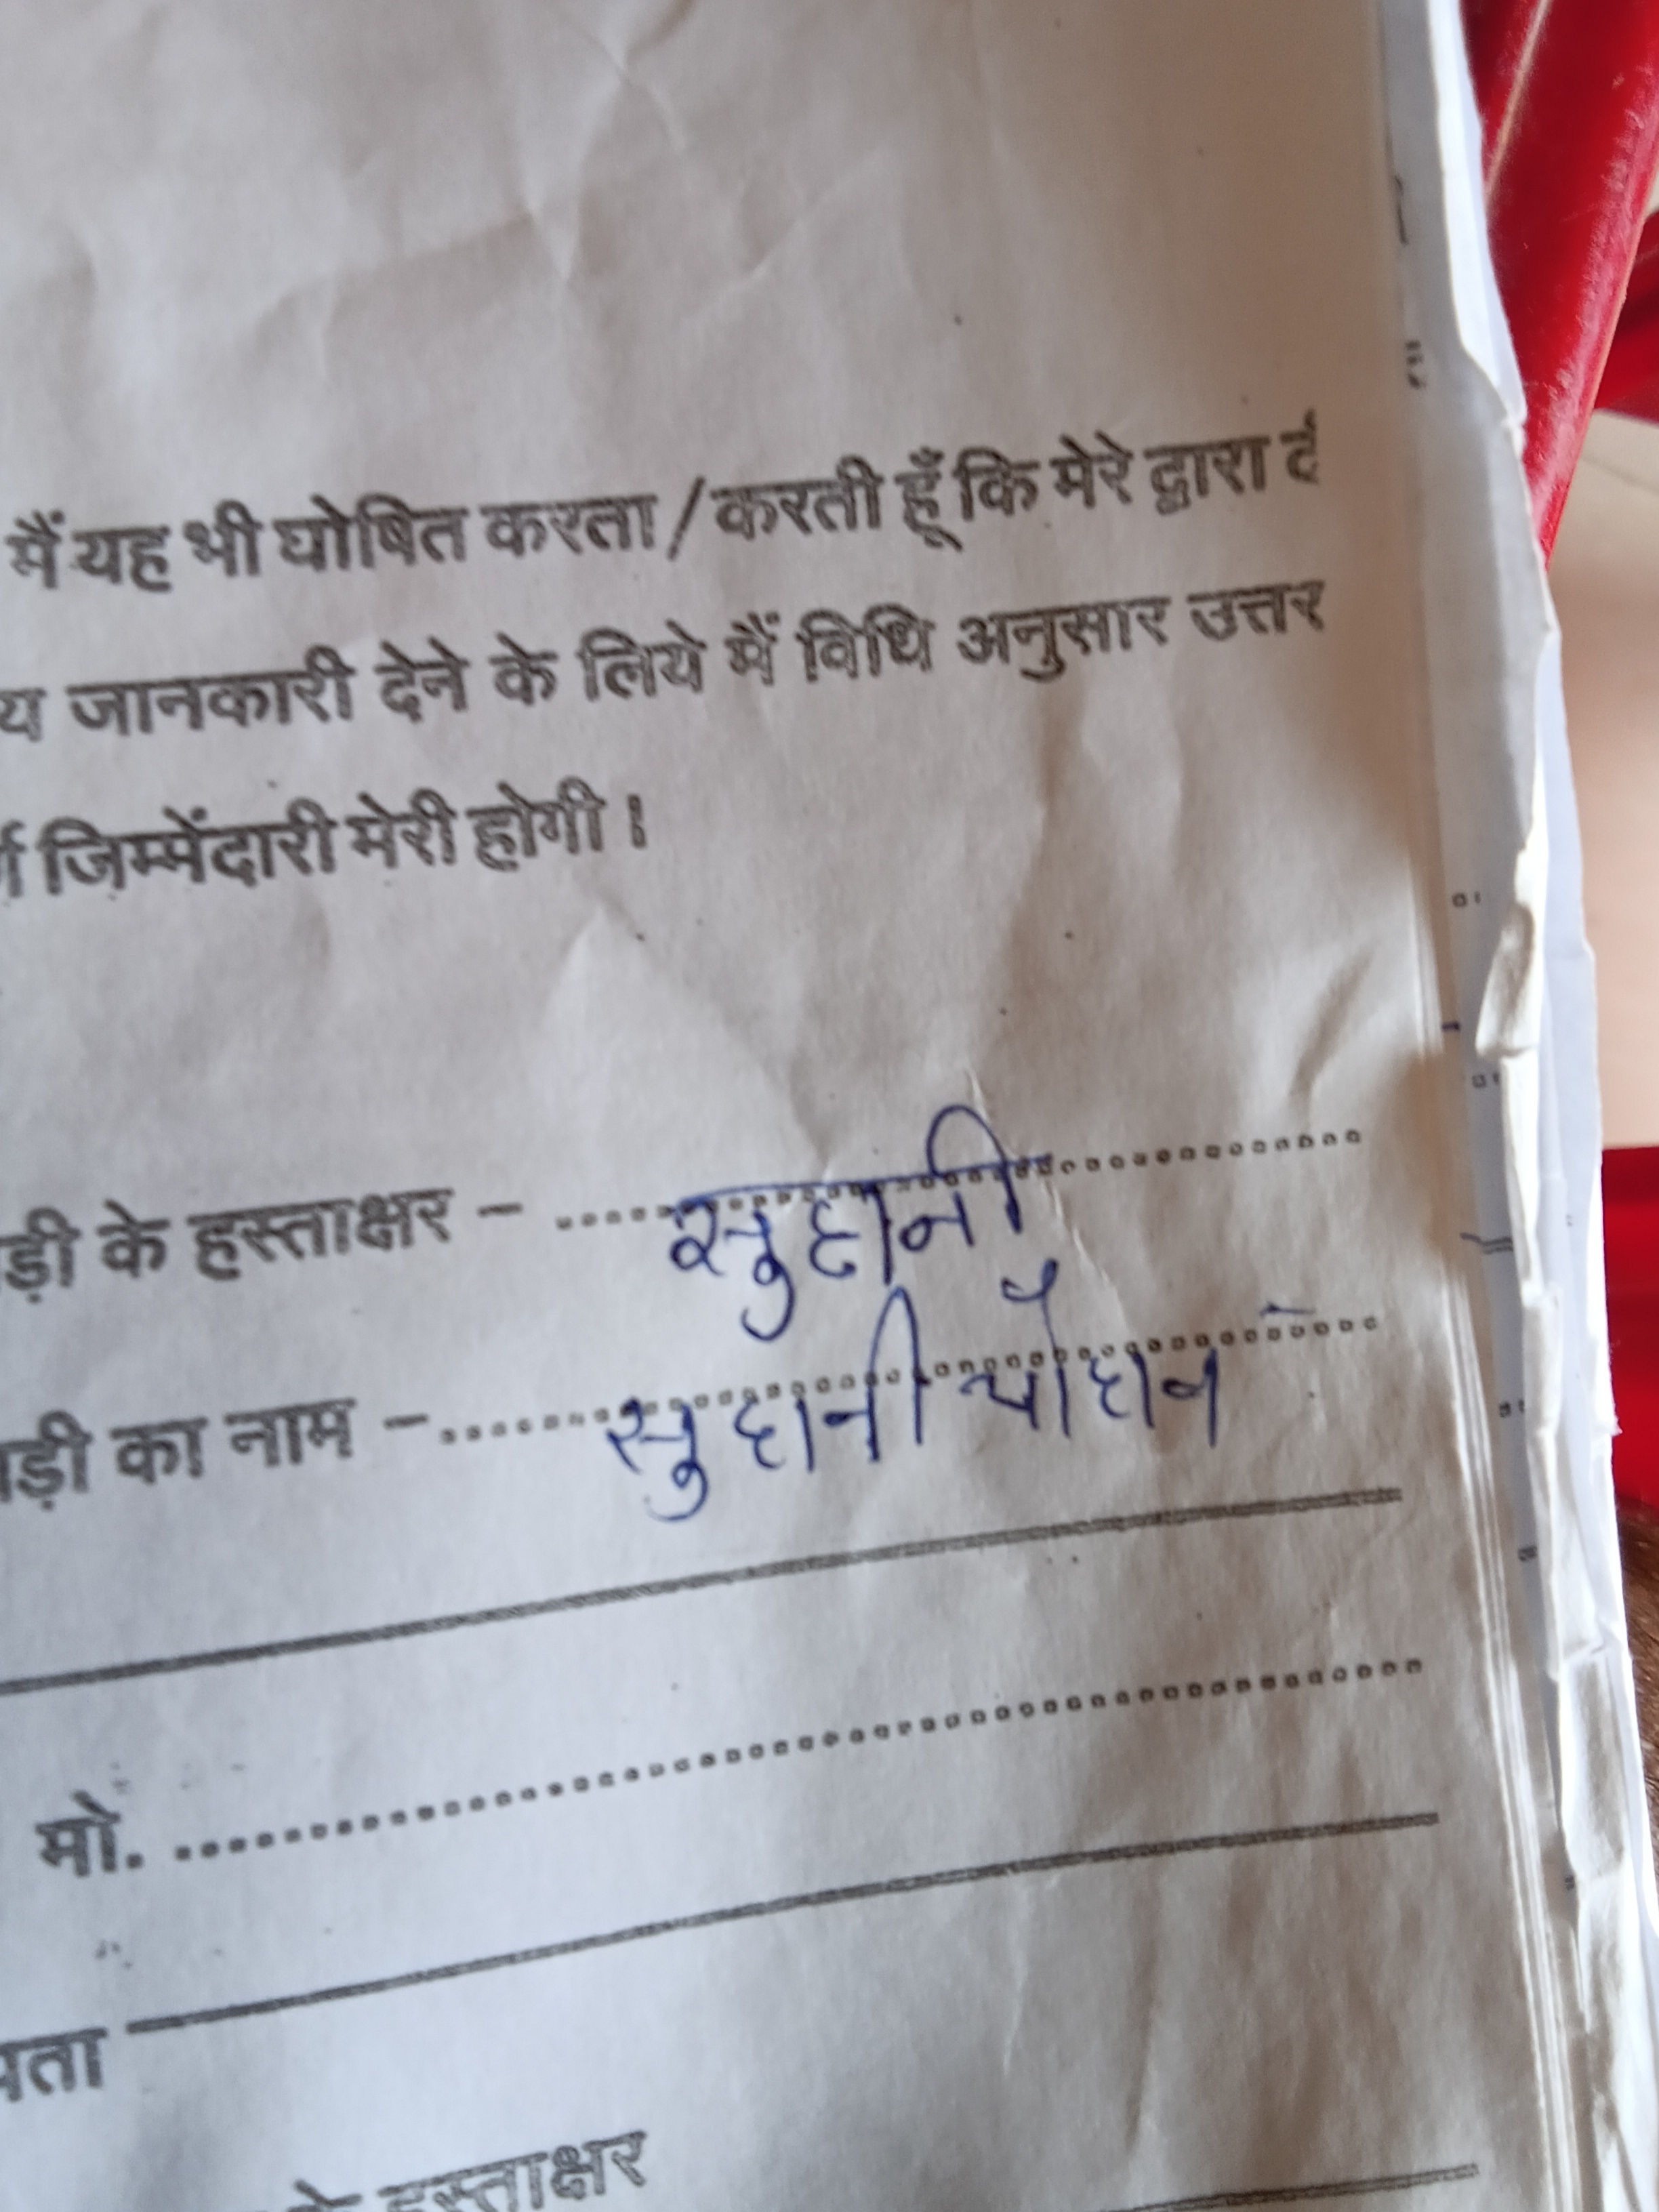 मैं यह भी घोषित करता / करती हूँ कि मेरे द्वारा
य जानकारी देने के लिये मैं विधि अनुसार उत्तर
जिम्मेंदारी मेरी होगी।
ड़ी के हस्ताक्षर – सुहानी
ाड़ी का नाम – सुहानी चौहान
मो.
पता
के हस्ताक्षर